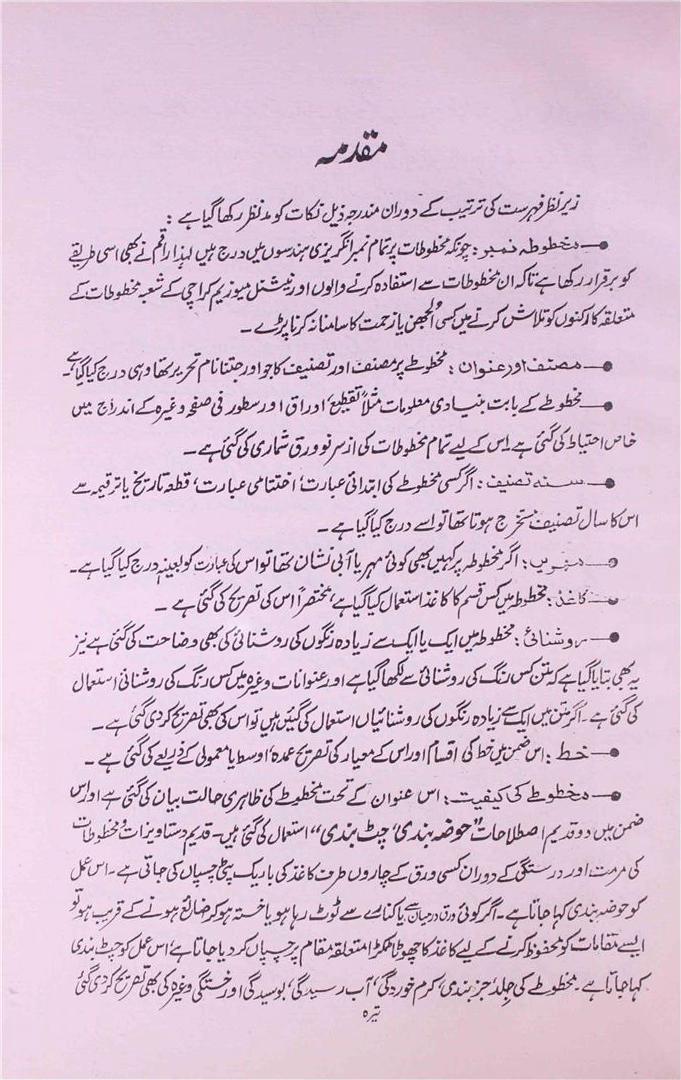 مقدمہ
زیر نظر فہرست کی ترتیب کے دوران مندرجہ ذیل نکات کو مدنظر رکھا گیا ہے :
●— مخطوطہ نمبر : چونکہ مخطوطات پر تمام نمبر انگریزی ہندسوں میں درج ہیں لہذا راقم نے بھی اسی طریقے
کو برقرار رکھا ہے تاکہ ان مخطوطات سے استفادہ کرنے والوں اور نیشنل میوزیم کراچی کے شعبہ مخطوطات کے
متعلقہ کارکنوں کو تلاش کرنے میں کسی اُلجھن یا زحمت کا سامنا نہ کرنا پڑے ۔
●— مصنف اور عنوان : مخطوطے پر مصنف اور تصنیف کا جو اور جتنا نام تحریر تھا وہی درج کیا گیا ہے۔
●— مخطوطے کے بابت بنیادی معلومات مثلاً تقطیع، اوراق اور سطور فی صفحہ وغیرہ کے اندراج میں
خاص احتیاط کی گئی ہے اس کے لیے تمام مخطوطات کی از سر نو ورق شماری کی گئی ہے ۔
●— سنہ تصنیف : اگر کسی مخطوطے کی ابتدائی عبارت، اختتامی عبارت، قطعہ تاریخ یا ترقیمہ سے
اس کا سال تصنیف مستخرج ہوتا تھا تو اسے درج کیا گیا ہے ۔
●— مہریں : اگر مخطوطہ پر کہیں بھی کوئی مہر یا آبی نشان تھا تو اس کی عبارت کو بعینہ درج کیا گیا ہے۔
●— کاغذ : مخطوطہ میں کس قسم کا کاغذ استعمال کیا گیا ہے، مختصراً اس کی تصریح کی گئی ہے ۔
●— روشنائی : مخطوطہ میں ایک یا ایک سے زیادہ رنگوں کی روشنائی کی بھی وضاحت کی گئی ہے نیز
یہ بھی بتایا گیا ہے کہ متن کس رنگ کی روشنائی سے لکھا گیا ہے اور عنوانات وغیرہ میں کس رنگ کی روشنائی استعمال
کی گئی ہے ۔ اگر متن میں ایک سے زیادہ رنگوں کی روشنائیاں استعمال کی گئیں ہیں تو اس کی بھی تصریح کر دی گئی ہے ۔
●— خط : اس ضمن میں خط کی اقسام اور اس کے معیار کی تصریح عمدہ، اوسط یا معمولی کے ذریعے کی گئی ہے ۔
●— مخطوطے کی کیفیت : اس عنوان کے تحت مخطوطے کی ظاہری حالت بیان کی گئی ہے اور اس
ضمن میں دو قدیم اصطلاحات ”حوضہ بندی، چٹ بندی“ استعمال کی گئی ہیں۔ قدیم دستاویزات و مخطوطات
کی مرمت اور درستگی کے دوران کسی ورق کے چاروں طرف کاغذ کی باریک پٹی چسپاں کی جاتی ہے ۔ اس عمل
کو حوضہ بندی کہا جاتا ہے ۔ اگر کوئی ورق درمیان سے یا کنارے سے ٹوٹ رہا ہو یا خستہ ہو کر ضائع ہونے کے قریب ہو تو
ایسے مقامات کو محفوظ کرنے کے لیے کاغذ کا چھوٹا ٹکڑا متعلقہ مقام پر چسپاں کر دیا جاتا ہے اس عمل کو چٹ بندی
کہا جاتا ہے ۔ مخطوطے کی جلد، جز بندی، کرم خوردگی، آب رسیدگی، بوسیدگی اور خستگی وغیرہ کی بھی تصریح کر دی گئی
تیرہ